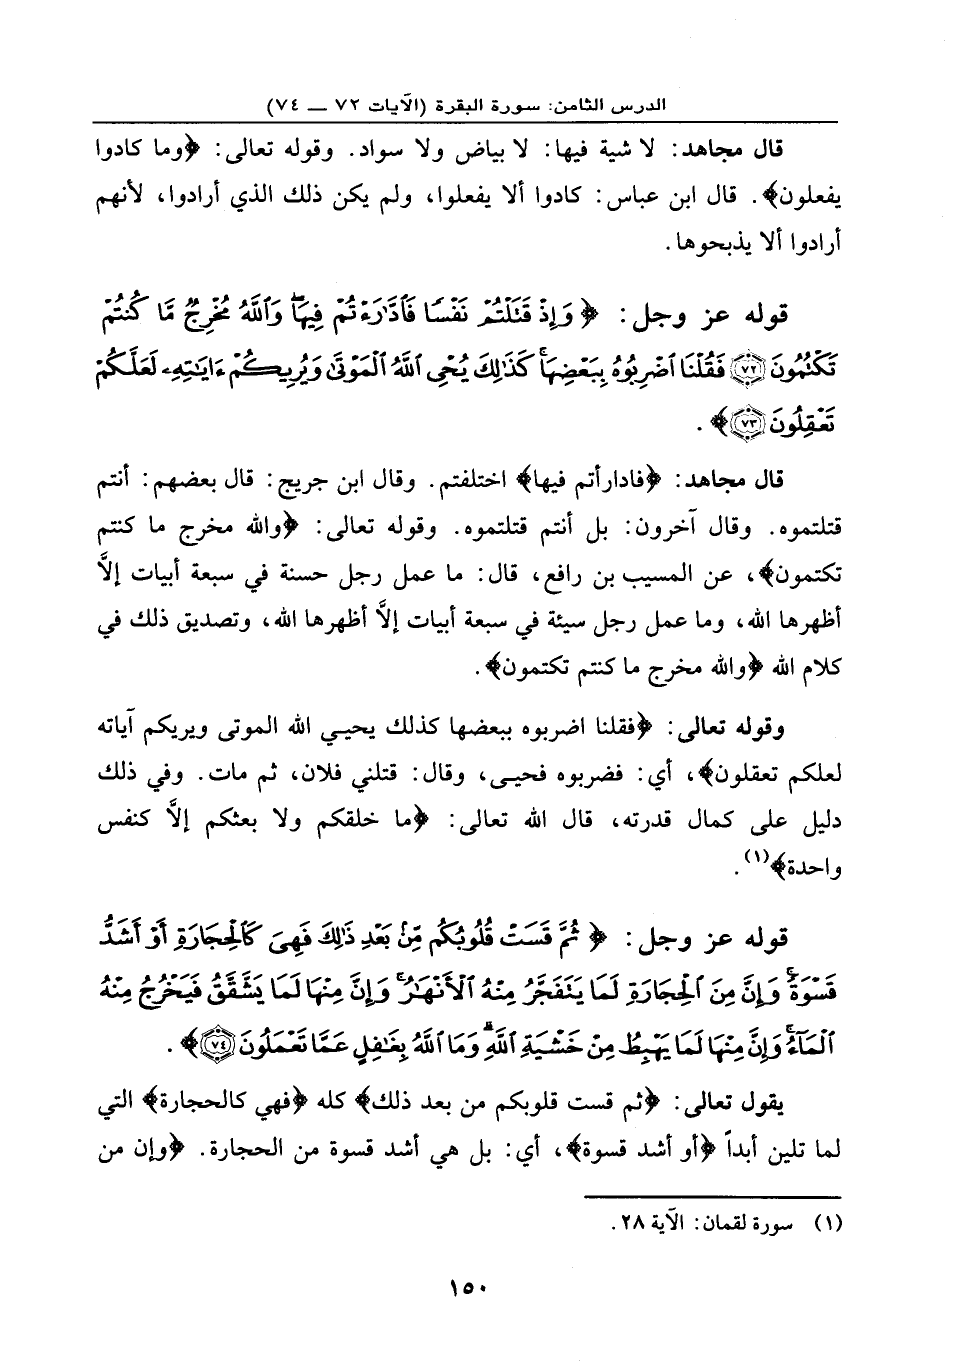 الدرس الثامن: سورة البقرة (الآيات ٧٢ ـ ٧٤)
قال مجاهد: لا شية فيها: لا بياض ولا سواد. وقوله تعالى: ﴿وما كادوا
يفعلون﴾. قال ابن عباس: كادوا ألا يفعلوا، ولم يكن ذلك الذي أرادوا، لأنهم
أرادوا ألا يذبحوها.
قوله عز وجل: ﴿وَإِذْ قَتَلْتُمْ نَفْسًا فَٱدَّٰرَٰٔتُمْ فِيهَاۖ وَٱللَّهُ مُخْرِجٌ مَّا كُنتُمْ
تَكْتُمُونَ ﴿٧٢﴾ فَقُلْنَا ٱضْرِبُوهُ بِبَعْضِهَاۚ كَذَٰلِكَ يُحْىِ ٱللَّهُ ٱلْمَوْتَىٰ وَيُرِيكُمْ ءَايَٰتِهِۦ لَعَلَّكُمْ
تَعْقِلُونَ ﴿٧٣﴾﴾.
قال مجاهد: ﴿فادارأتم فيها﴾ اختلفتم. وقال ابن جريج: قال بعضهم: أنتم
قتلتموه. وقال آخرون: بل أنتم قتلتموه. وقوله تعالى: ﴿والله مخرج ما كنتم
تكتمون﴾، عن المسيب بن رافع، قال: ما عمل رجل حسنة في سبعة أبيات إلاَّ
أظهرها الله، وما عمل رجل سيئة في سبعة أبيات إلاَّ أظهرها الله، وتصديق ذلك في
كلام الله ﴿والله مخرج ما كنتم تكتمون﴾.
وقوله تعالى: ﴿فقلنا اضربوه ببعضها كذلك يحيي الله الموتى ويريكم آياته
لعلكم تعقلون﴾، أي: فضربوه فحيي، وقال: قتلني فلان، ثم مات. وفي ذلك
دليل على كمال قدرته، قال الله تعالى: ﴿ما خلقكم ولا بعثكم إلاَّ كنفس
واحدة﴾(١).
قوله عز وجل: ﴿ثُمَّ قَسَتْ قُلُوبُكُم مِّنۢ بَعْدِ ذَٰلِكَ فَهِىَ كَٱلْحِجَارَةِ أَوْ أَشَدُّ
قَسْوَةًۚ وَإِنَّ مِنَ ٱلْحِجَارَةِ لَمَا يَتَفَجَّرُ مِنْهُ ٱلْأَنْهَٰرُۚ وَإِنَّ مِنْهَا لَمَا يَشَّقَّقُ فَيَخْرُجُ مِنْهُ
ٱلْمَآءُۚ وَإِنَّ مِنْهَا لَمَا يَهْبِطُ مِنْ خَشْيَةِ ٱللَّهِۗ وَمَا ٱللَّهُ بِغَٰفِلٍ عَمَّا تَعْمَلُونَ ﴿٧٤﴾﴾.
يقول تعالى: ﴿ثم قست قلوبكم من بعد ذلك﴾ كله ﴿فهي كالحجارة﴾ التي
لما تلين أبداً ﴿أو أشد قسوة﴾، أي: بل هي أشد قسوة من الحجارة. ﴿وإن من
(١) سورة لقمان: الآية ٢٨.
١٥٠